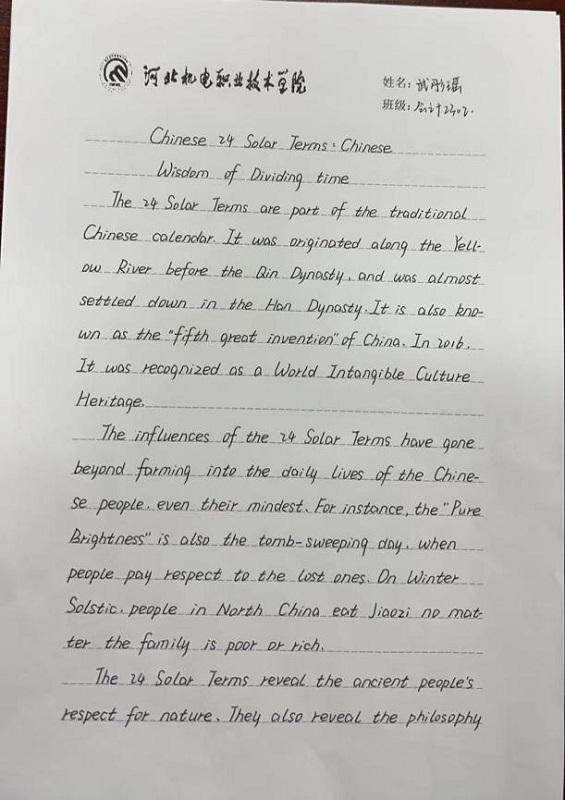 河北机电职业技术学院
姓名: 武彤瑶
班级: 会计2302.
Chinese 24 Solar Terms: Chinese
Wisdom of Dividing time
The 24 Solar Terms are part of the traditional
Chinese calendar. It was originated along the Yell-
ow River before the Qin Dynasty, and was almost
settled down in the Han Dynasty. It is also kno-
wn as the "fifth great invention" of China. In 2016,
It was recognized as a World Intangible Culture
Heritage.
The influences of the 24 Solar Terms have gone
beyond farming into the daily lives of the Chine-
se people, even their mindest. For instance, the "Pure
Brightness" is also the tomb-sweeping day, when
people pay respect to the lost ones. On Winter
Solstic, people in North China eat Jiaozi no mat-
ter the family is poor or rich.
The 24 Solar Terms reveal the ancient people's
respect for nature. They also reveal the philosophy